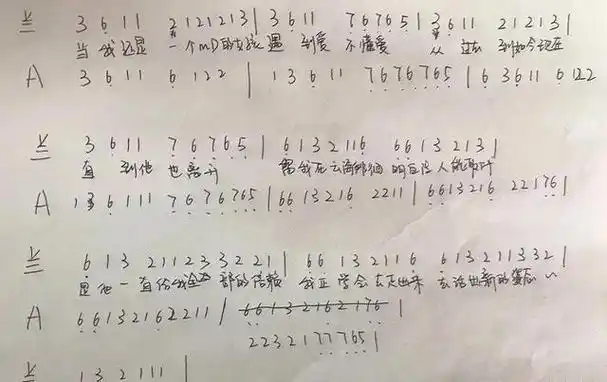 兰 3 6 11 2121213 | 3 6 11 76765 | 3 6 11 21213 |
当 我 还是 一个 的 遇 到爱 不懂爱 从 过去 到如今现在
A 3 6 11 6 122 | 1 3 6 11 7676765 | 6 3 6 11 6 122
兰 3 6 11 76765 | 6132116 6613213 |
直 到他 也离开 留我在云海徘徊 的 人能取代
A 13 6 111 7676765 | 66 13216 2211 | 6613216 22176 |
兰 6 13 211233221 | 66 132116 613211332 |
是他一直给我全部的 我正学会去走出来 去活出新的
A 66132162211 | 66132162176 |
22321777765 |
兰 132111 |